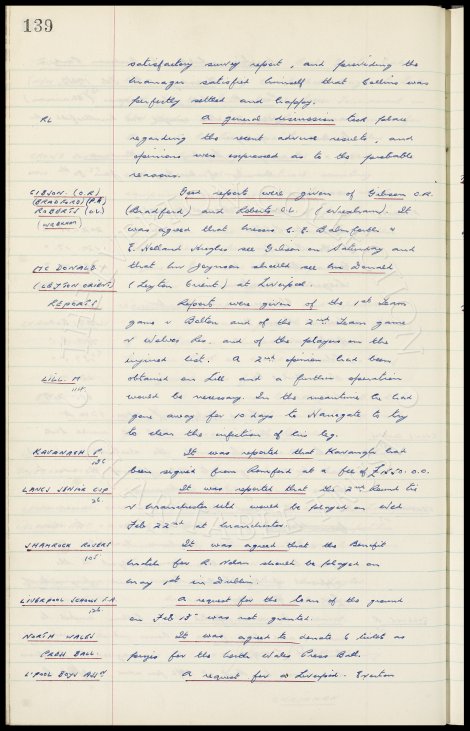 139
satisfactory survey report, and providing the
manager satisfied himself that Collins was
perfectly settled and happy.
RL A general discussion took place
regarding the recent adverse results, and
opinions were expressed as to the probable
reasons.
GIBSON. (O.R) Good reports were given of Gibson O.R.
(BRADFORD) (P.A) (Bradford) and Roberts O.L (Wrexham). It
ROBERTS (O.L)
(WREXHAM) was agreed that Messrs C. E. Balmforth &
E. Holland Hughes see Gibson on Saturday and
MC DONALD that Mr Joynson should see Mc Donald
(LEYTON ORIENT) (Leyton Orient) at Liverpool.
REPORTS Reports were given of the 1st Team
game v Bolton and of the 2nd Team game
v Wolves Res. and of the players on the
injured list. A 2nd opinion had been
LILL. M obtained on Lill and a further operation
would be necessary. In the meantime he had
gone away for 10 days to Harrogate to try
to clear the infection of his leg.
KAVANAGH P. It was reported that Kavanagh had
been signed from Romford at a fee of
LANCS SENIOR CUP It was reported that the 2nd Round tie
v Manchester Utd would be played on Wed
Feb 22nd at Manchester.
SHAMROCK ROVERS It was agreed that the Benefit
105 match for R. Nolan should be played on
May 1st in Dublin.
LIVERPOOL SCHOOLS F.A. A request for the loan of the ground
126 on Feb 18 was not granted.
NORTH WALES It was agreed to donate 6 tickets as
PRESS BALL. prizes for the North Wales Press Ball.
L'POOL BOYS ASSN A request for a Liverpool - Everton